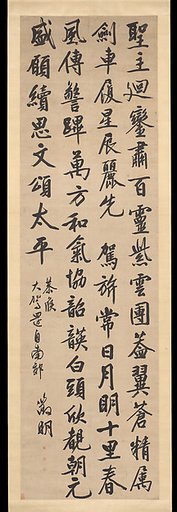 聖主迴鑾肅百靈紫雲團蓋翼蒼精屬
劍車履星辰麗先 駕旂常日月明十里春
風傳警蹕萬方和氣協韶韺白頭欣覩朝元
盛願續思文頌太平
恭候
大駕還自南郊
徵明